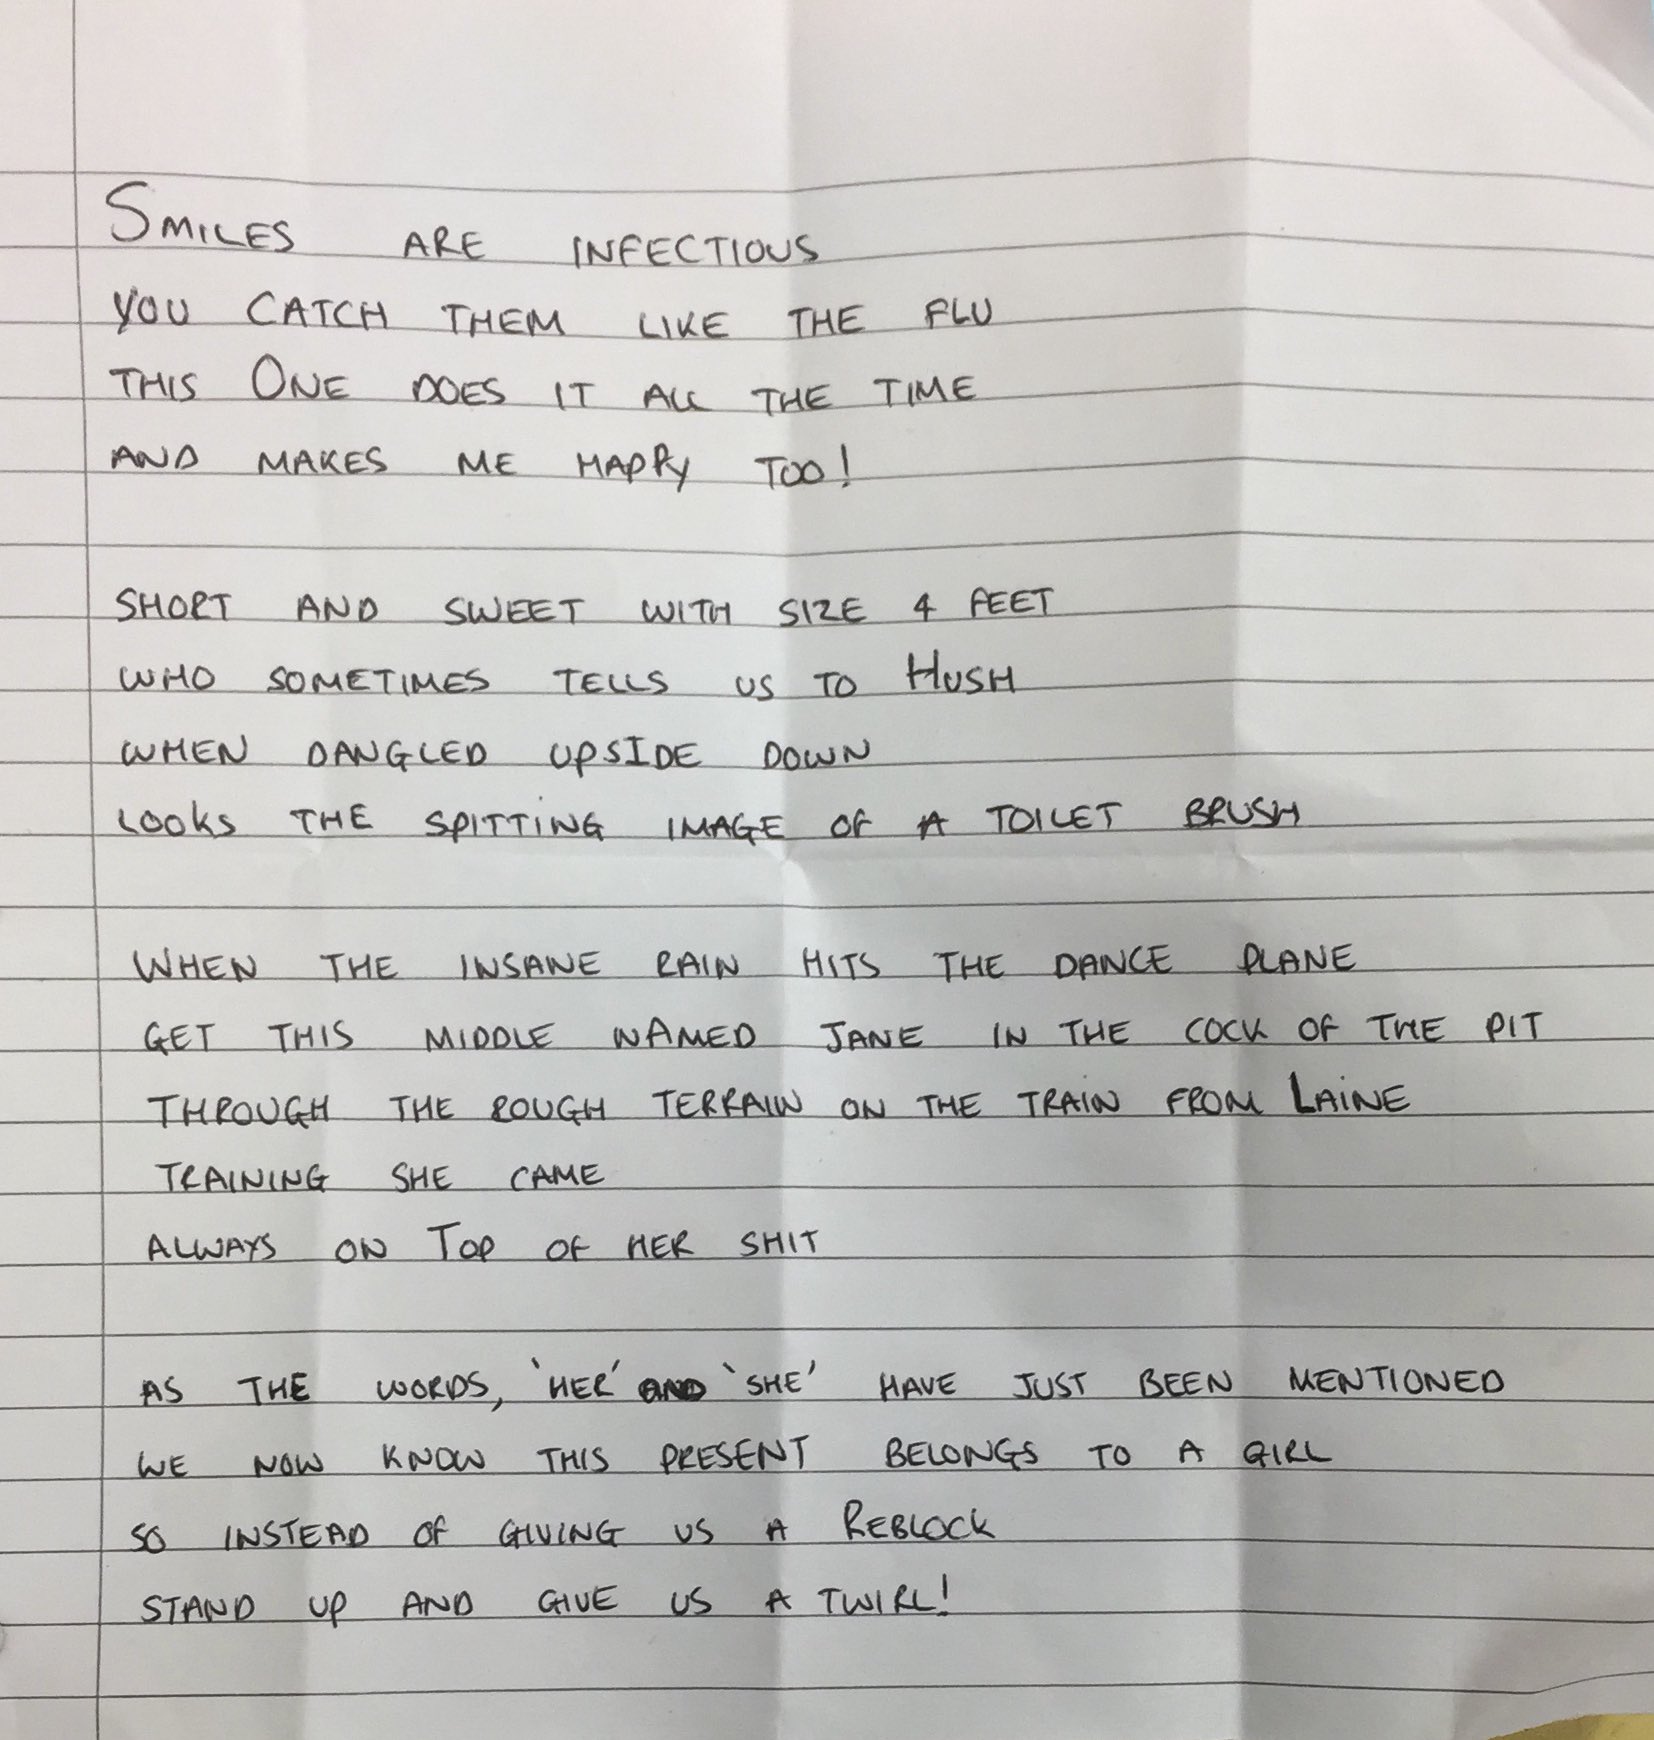 SMILES ARE INFECTIOUS
YOU CATCH THEM LIKE THE FLU
THIS ONE DOES IT ALL THE TIME
AND MAKES ME HAPPY TOO!
SHORT AND SWEET WITH SIZE 4 FEET
WHO SOMETIMES TELLS US TO HUSH
WHEN DANGLED UPSIDE DOWN
LOOKS THE SPITTING IMAGE OF A TOILET BRUSH
WHEN THE INSANE RAIN HITS THE DANCE PLANE
GET THIS MIDDLE NAMED JANE IN THE COCK OF THE PIT
THROUGH THE ROUGH TERRAIN ON THE TRAIN FROM LAINE
TRAINING SHE CAME
ALWAYS ON TOP OF HER SHIT
AS THE WORDS, 'HER' AND 'SHE' HAVE JUST BEEN MENTIONED
WE NOW KNOW THIS PRESENT BELONGS TO A GIRL
SO INSTEAD OF GIVING US A REBLOCK
STAND UP AND GIVE US A TWIRL!